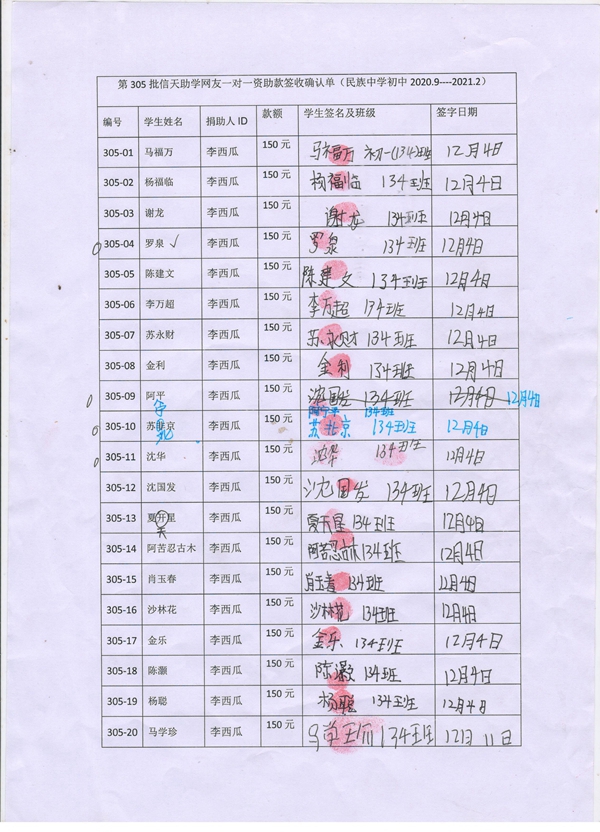 第 305 批信天助学网友一对一资助款签收确认单（民族中学初中 2020.9----2021.2）
编号 学生姓名 捐助人 ID 款额 学生签名及班级 签字日期
305-01 马福万 李西瓜 150 元 马福万 初一(134)班 12月4日
305-02 杨福临 李西瓜 150 元 杨福临 134班 12月4日
305-03 谢龙 李西瓜 150 元 谢龙 134班 12月4日
305-04 罗泉 李西瓜 150 元 罗泉 134班 12月4日
305-05 陈建文 李西瓜 150 元 陈建文 134班 12月4日
305-06 李万超 李西瓜 150 元 李万超 134班 12月4日
305-07 苏永财 李西瓜 150 元 苏永财 134班 12月4日
305-08 金利 李西瓜 150 元 金利 134班 12月4日
305-09 阿平 李西瓜 150 元 沈国发 134班 12月4日 12月4日
134班
305-10 苏 京 李西瓜 150 元 苏北京 134班 12月4日
北
305-11 沈华 李西瓜 150 元 沈华 134班 12月4日
305-12 沈国发 李西瓜 150 元 沈国发 134班 12月4日
305-13 夏开星 李西瓜 150 元 夏天星 134班 12月4日
天
305-14 阿苦忍古木 李西瓜 150 元 阿苦忍古木 134班 12月4日
305-15 肖玉春 李西瓜 150 元 肖玉春 134班 12月4日
305-16 沙林花 李西瓜 150 元 沙林花 134班 12月4日
305-17 金乐 李西瓜 150 元 金乐 134班 12月4日
305-18 陈灏 李西瓜 150 元 陈灏 134班 12月4日
305-19 杨聪 李西瓜 150 元 杨聪 134班 12月4日
305-20 马学珍 李西瓜 150 元 134班 12月11日